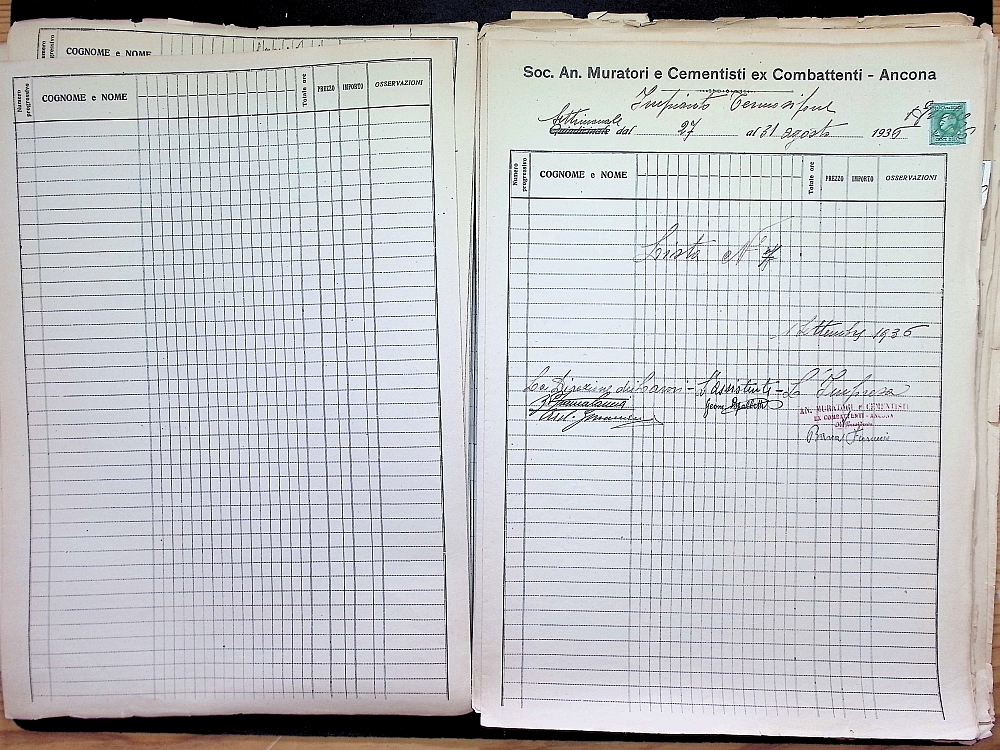 COGNOME e NOME
Numero progressivo
COGNOME e NOME
Totale ore
PREZZO
IMPORTO
OSSERVAZIONI
Soc. An. Muratori e Cementisti ex Combattenti - Ancona
Impianto Termosifone
Settimanale
Quindicinale dal 27 al 31 agosto 1936
Numero progressivo
COGNOME e NOME
Totale ore
PREZZO
IMPORTO
OSSERVAZIONI
Lista N
1 Settembre 1936
La Direzione dei Lavori - L'assistente - L'Impresa
Geom.
AN. MURATORI e CEMENTISTI
EX COMBATTENTI - ANCONA